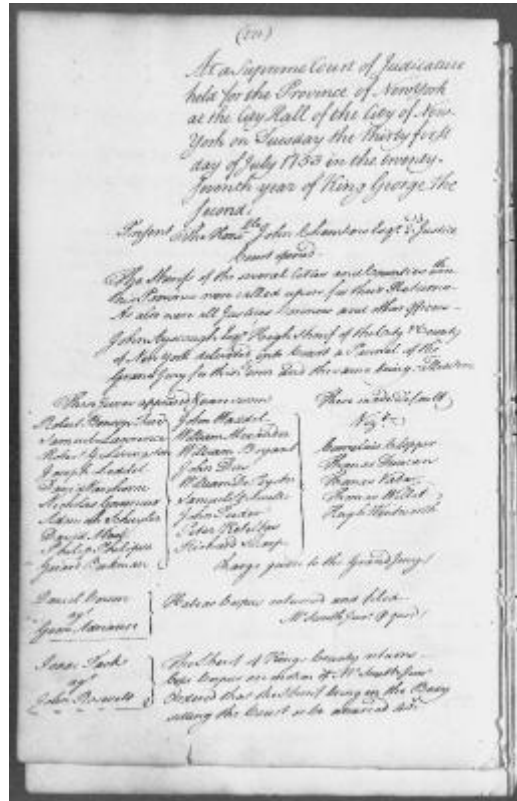 At a Supreme Court of Judicature
held for the Province of New York
at the City Hall of the City of New
York on Tuesday the thirty first
day of July 1753 in the twenty
Seventh year of King George the
Second.
Present The Hono.ble John Chambers Esq.r 2.d Justice
Court opened
The Sheriffs of the several Cities and Counties
this Province were called upon for their Returns
As also were all Justices Coroners and other officers
John Ayscough Esq.r High Sheriff of the City & County
of New York delivered into Court a Pannel of the
Grand Jury for this Term and the same being
These Jurors appeared & were sworn
Robert Benson
Samuel Lawrence
Robert G. Livingston
Joseph Haddel
David
Nicholas Gouverneur
Adoniah Schuyler
David
Philip Philipse
Gerard Beekman
John Waddel
William Alexander
William Bryant
John Dies
William De Peyster
Samuel Schuyler
John Pinder
Peter Keteltas
Richard Sharp
These made default
Viz.t
Cornelius Clopper
Thomas Duncan
Thomas Vater
Thomas Willet
Hugh Wentworth
Charge given to the Grand Jury
Daniel
ag.t
Habeas Corpus returned and filed
M.r Smith Jun.r
Isaac
ag.t
John
The Sheriff of Kings County returns
Cepi Corpus on motion of M.r Smith Jun.r
Ordered that the Sheriff bring in the Body
sitting the Court or be amerced